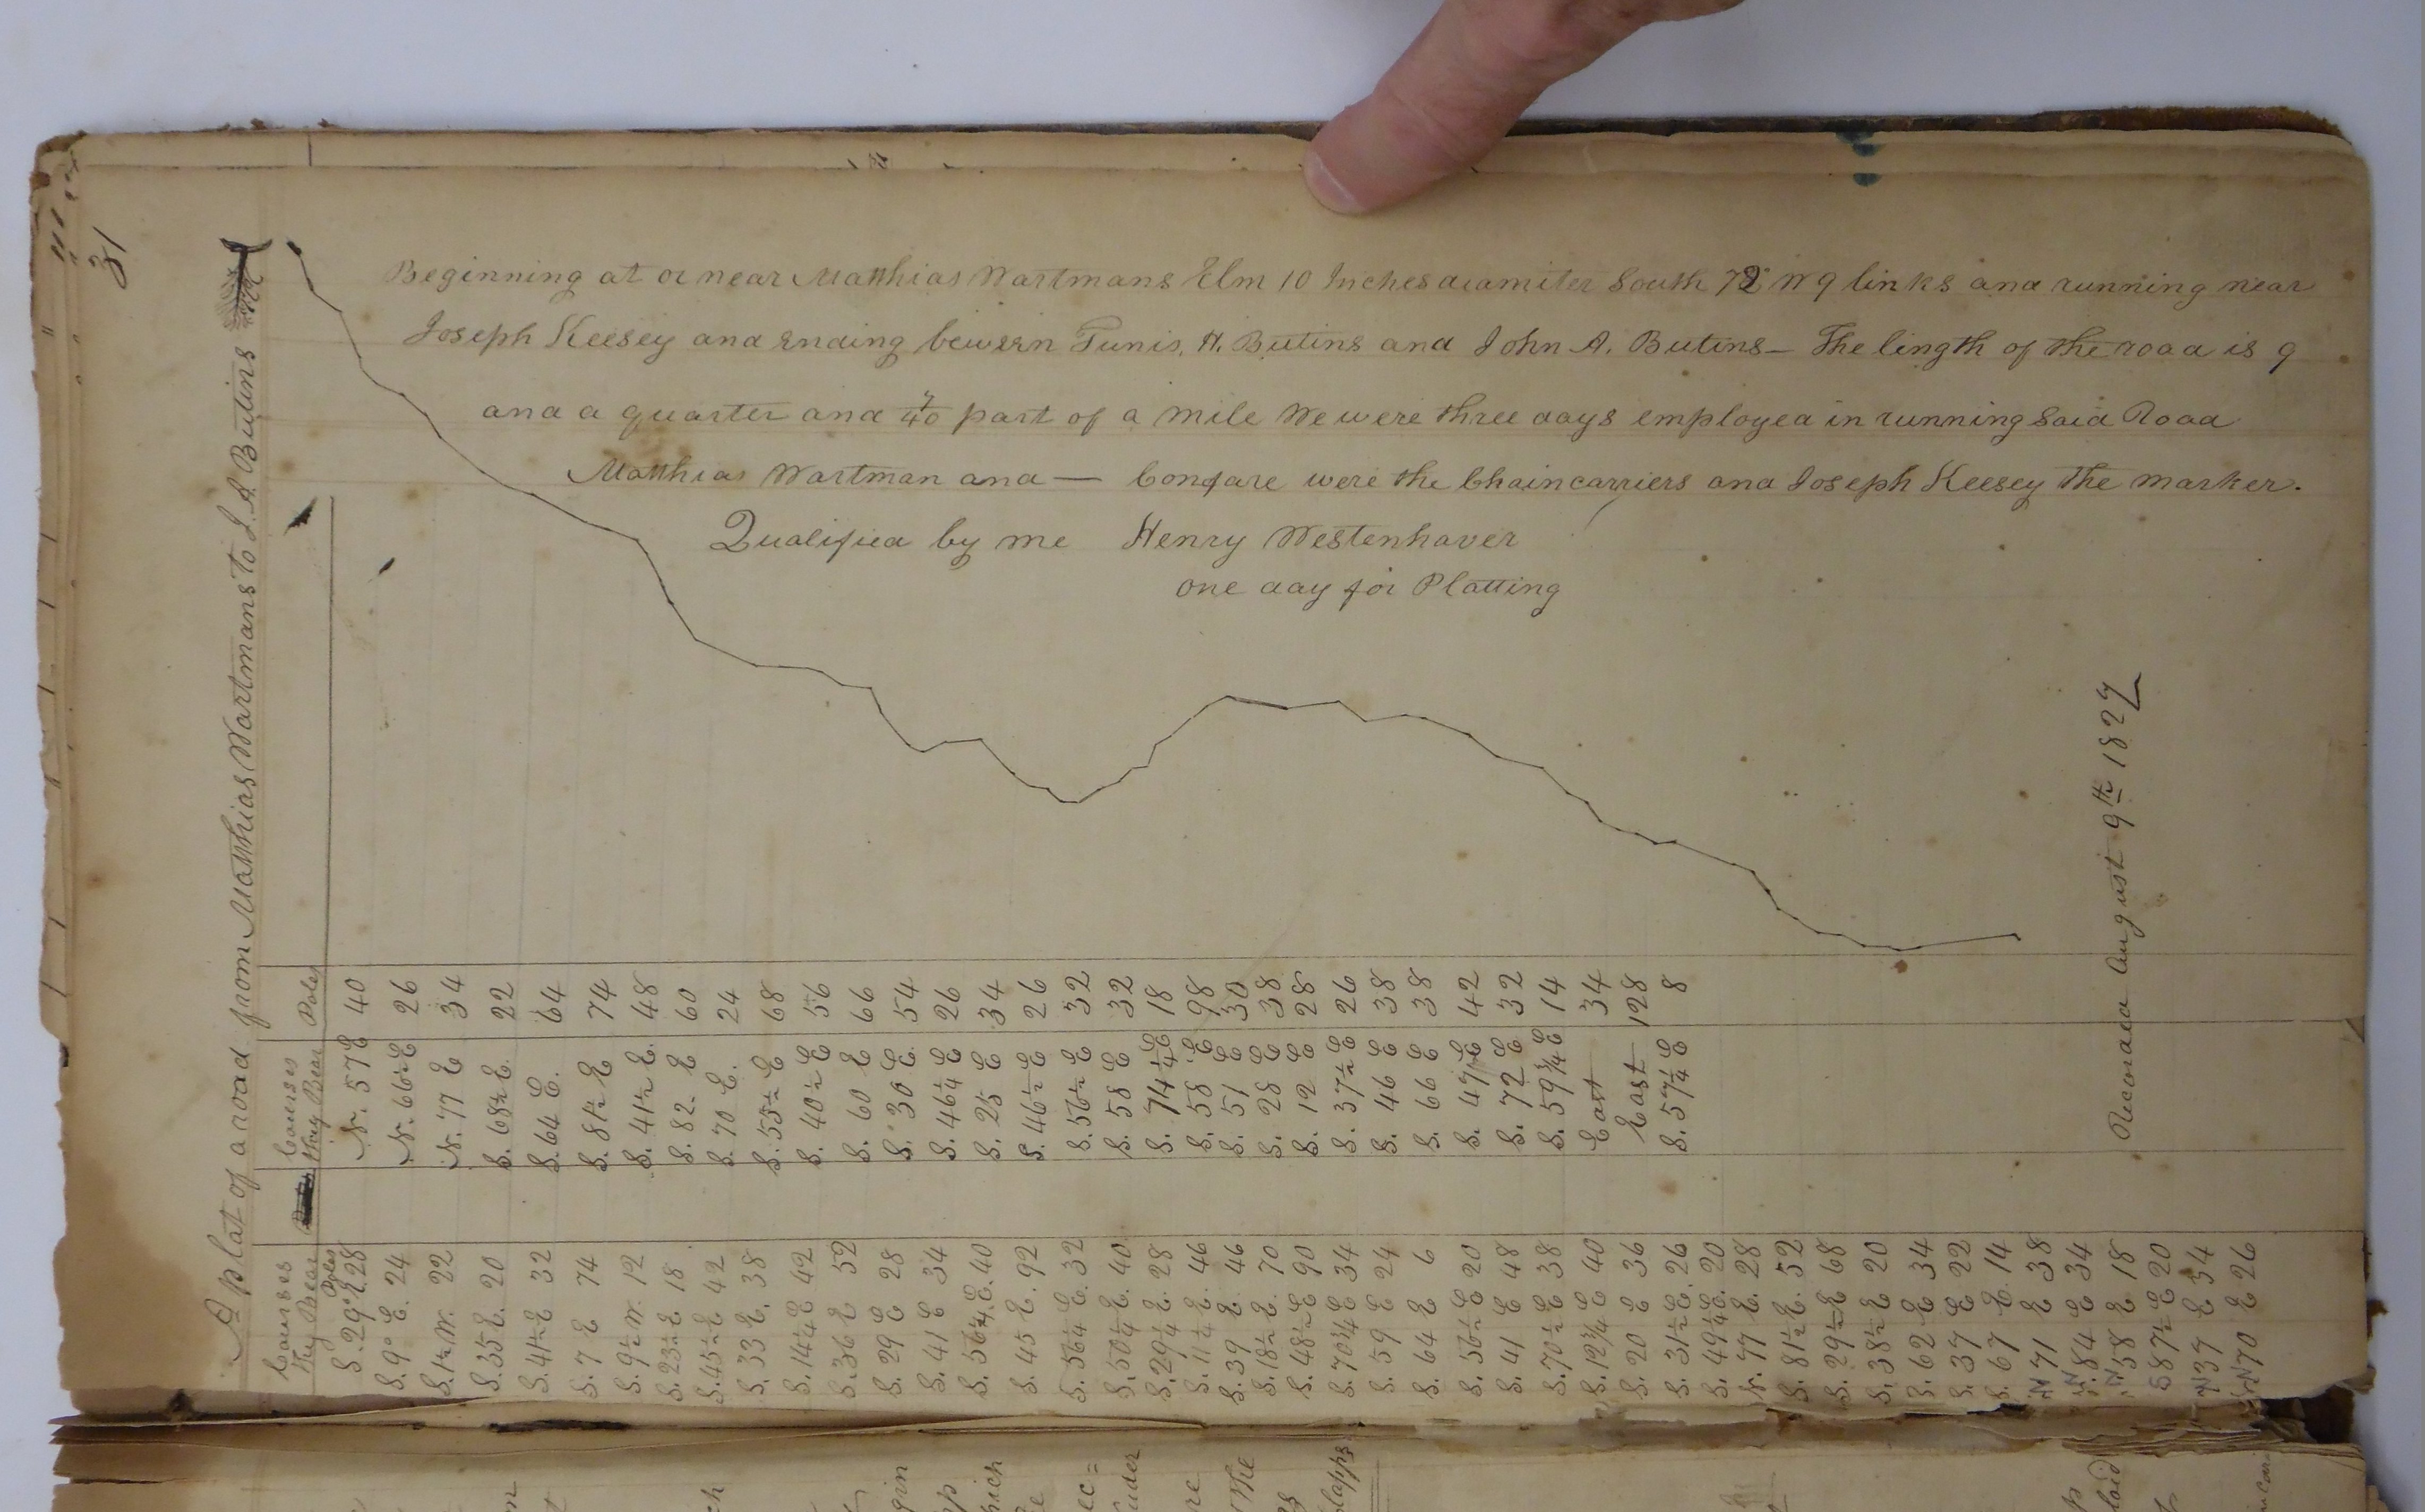 31
A plat of a road from Matthias Wartmans to J. A. Butins
Beginning at or near Matthias Wartmans Elm 10 Inches diamiter South 72° W 9 links and running near
Joseph Keesey and Ending beween Tunis. H. Butins and John A. Butins — The length of the road is 9
and a quarter and 7/40 part of a mile We were three days employed in running said Road
Matthias Wartman and — Congare were the Chaincarriers and Joseph Keesey the marker.
Qualified by me Henry Westenhaver
one day for Platting
Courses they Bear Poles
S. 29° E. 28
S. 9° E. 24
S. 1½ W. 22
S. 35 E. 20
S. 41½ E 32
S. 7 E 74
S. 9½ W. 12
S. 23½ E 18
S. 45½ E 42
S. 33 E. 38
S. 14¼ E 42
S. 36 E 52
S. 29 E 28
S. 41 E 34
S. 56¼ E. 40
S. 45 E. 92
S. 56¼ E. 32
S. 50¼ E. 40
S. 29¼ E. 28
S. 11¼ E. 46
S. 39 E. 46
S. 18½ E. 70
S. 48½ E 90
S. 70¾ E 34
S. 59 E 24
S. 64 E 6
S. 56½ E 20
S. 41 E 48
S. 70½ E 38
S. 12¾ E 40
S. 20 E 36
S. 31½ E. 26
S. 49¼ E. 20
N. 77 E. 28
S. 81½ E. 52
S. 29½ E 68
S. 38½ E 20
S. 62 E 34
S. 37 E 22
S. 67 E. 14
N 71 E 38
N. 84 E 34
N 58 E 18
S 87½ E 20
N 37 E 54
N 70 E 26
Courses they Bear Poles
N. 57 E 40
N. 66½ E 26
N. 77 E 34
S. 68½ E. 22
S. 64 E. 64
S. 81½ E 74
S. 41½ E. 48
S. 82 E 60
S. 70 E. 24
S. 55½ E 68
S. 40½ E 56
S. 60 E 66
S. 30 E. 54
S. 46¼ E 26
S. 25 E 34
S. 46½ E 26
S. 56½ E 32
S. 58 E 32
S. 74¼ E 18
S. 58 E 98
S. 51 E 30
S. 28 E 38
S. 12 E 28
S. 37½ E 26
S. 46 E 38
S. 66 E 38
S. 47 E 42
S. 72 E 32
S. 59¾ E 14
East 34
East 128
S. 57¼ E 8
Recorded August 9th 1827